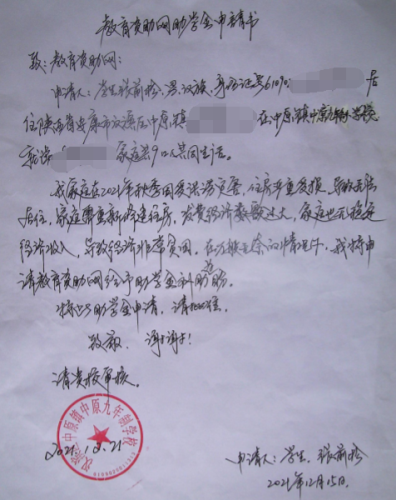 教育资助网助学金申请书
致:教育资助网:
申请人:学生张前
男,汉族,身份证号6109 居
住陕西省安康市汉滨区中原镇 在中原镇中原九年制学校
就读 家庭共9口人共同生活。
我家庭在2021年秋季因受洪涝灾害,住房严重受损,导致无法
居住,家庭需重新修建住房,花费经济数额过大,家庭也无稳定
经济收入,导致经济非常贫困,在万般无奈的情况下,我特申
请教育资助网给予助学金补助
特此助学金申请,请批准。
致敬 谢谢!
请贵校审核。
中原镇中原九年制学校
2021.12.21
申请人:学生,张前
2021年12月15日